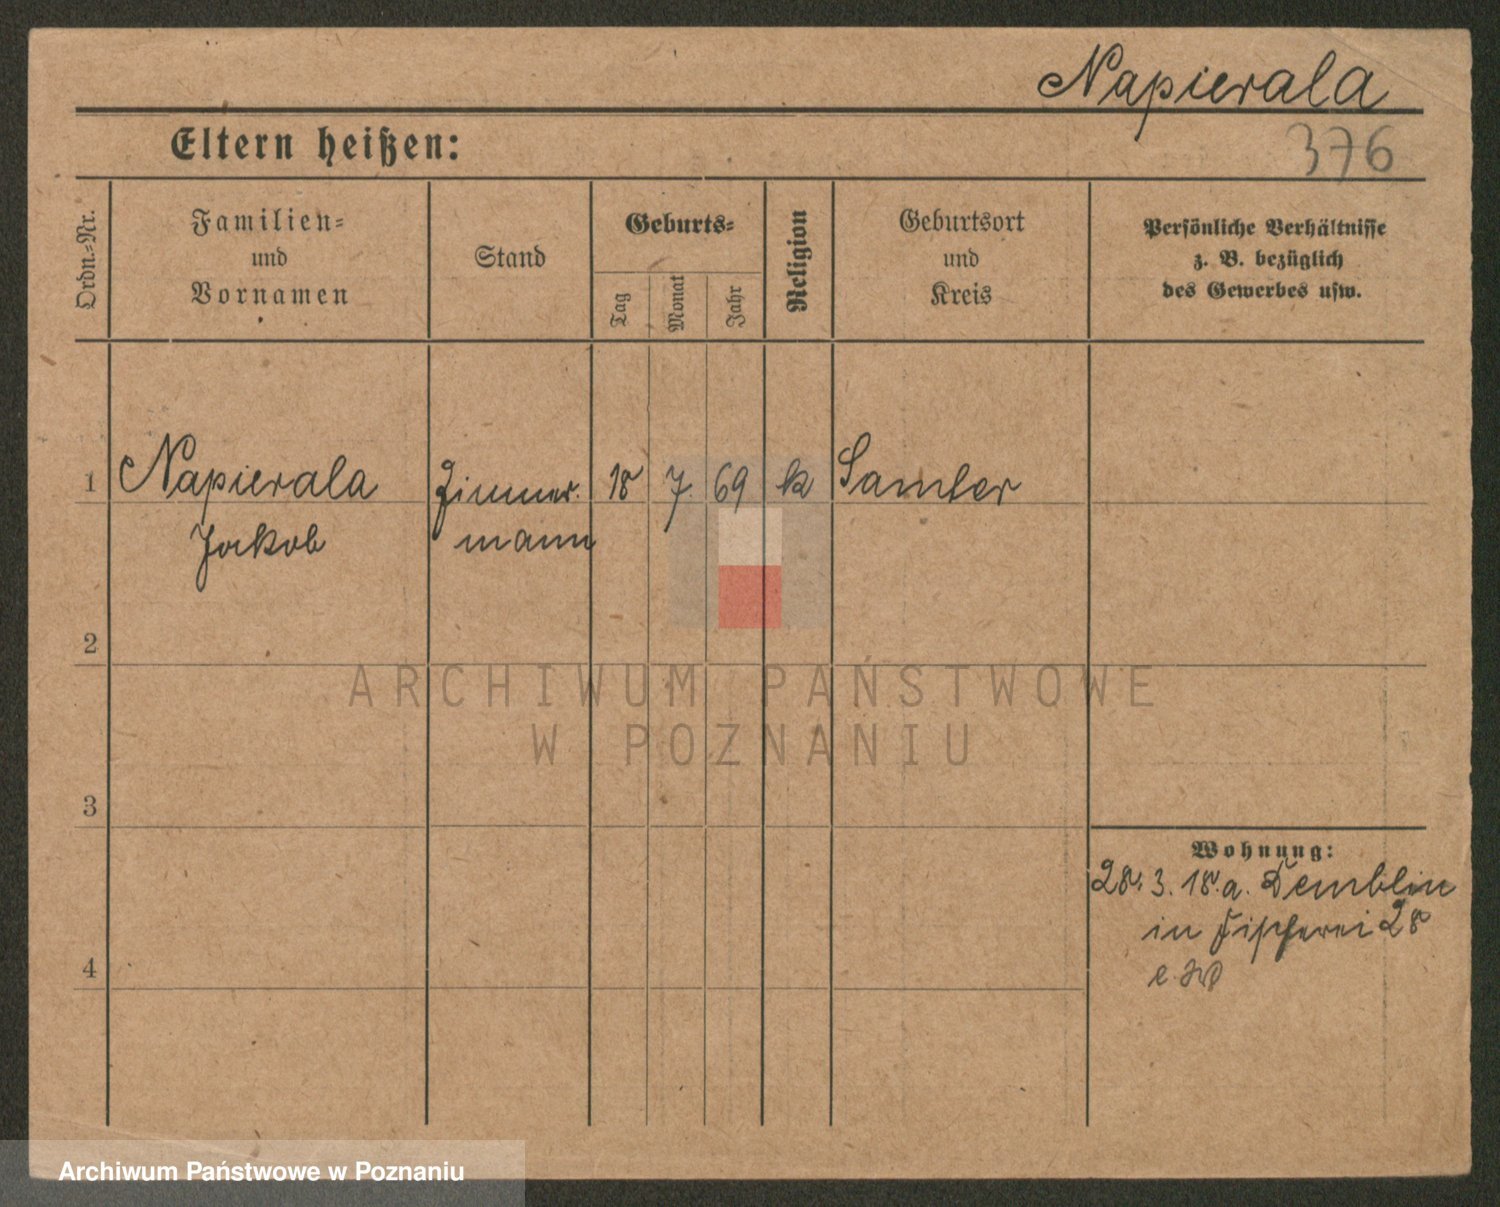 Napierala
Eltern heißen:
376
Ordn.-Nr.
Familien-
und
Vornamen
Stand
Geburts-
Tag
Monat
Jahr
Religion
Geburtsort
und
Kreis
Persönliche Verhältnisse
z. B. bezüglich
des Gewerbes usw.
1 Napierala Zimmer- 18 7 69 k Samter
Jakob mann
2
ARCHIWUM PAŃSTWOWE
W POZNANIU
3
Wohnung:
28. 3. 18. a. Demblin
in Fischerei 28
4
Archiwum Państwowe w Poznaniu